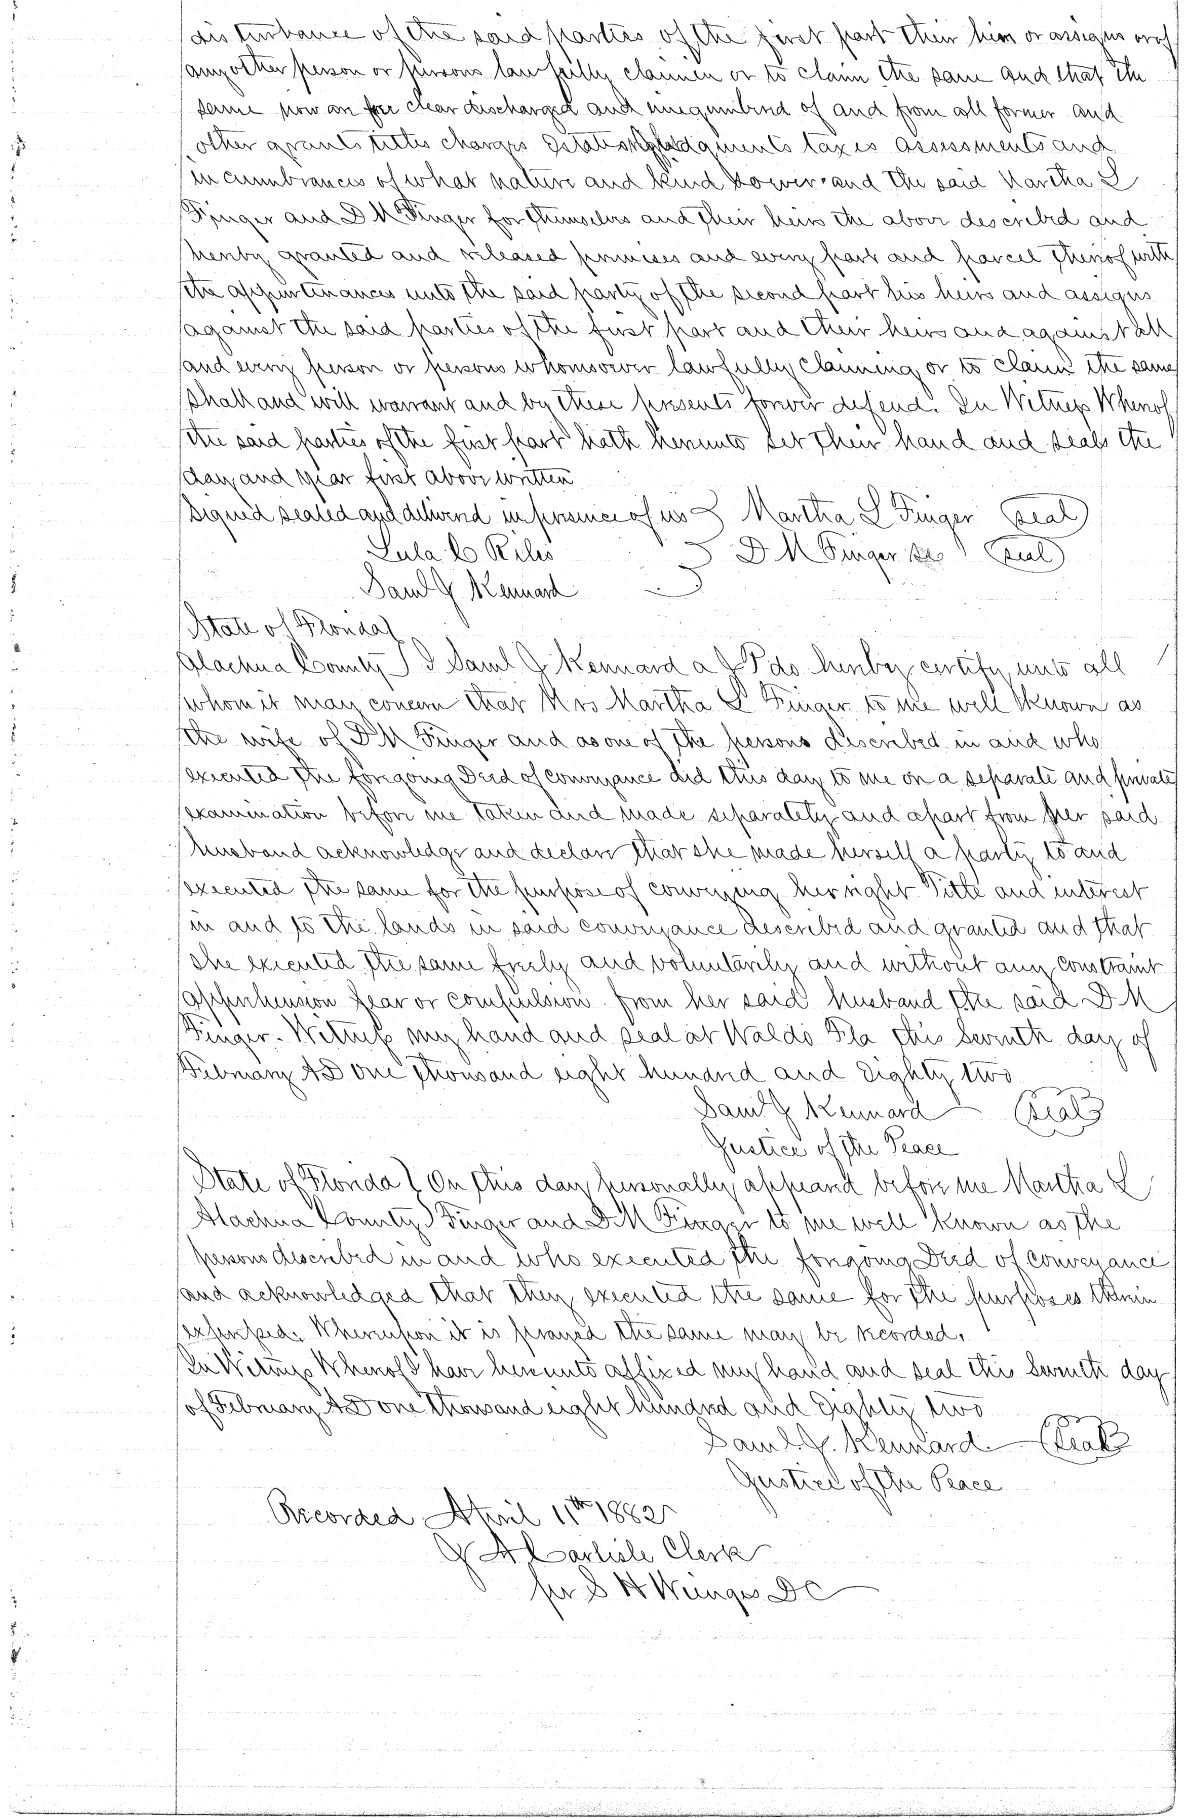 disturbance of the said parties of the first part their heirs or assigns or of
any other person or persons lawfully claimen or to claim the same and that the
same now are free clear discharged and unegumbered of and from all former and
other grants titles charges Estates judgments taxes assessments and
incumbrances of what nature and kind soever and the said Martha L
Finger and D M Finger for themselves and their heirs the above described and
hereby granted and released premises and every part and parcel thereof with
the appurtenances unto the said party of the second part his heirs and assigns
against the said parties of the first part and their heirs and against all
and every person or persons whomsoever lawfully claiming or to claim the same
shall and will warrant and by these presents forever defend. In Witness Whereof
the said parties of the first part hath hereunto set their hand and seals the
day and year first above written
Signed sealed and delivered in presence of us } Martha L Finger (seal)
Lula C Riles } D M Finger Sr (seal)
Saml J Kennard }
State of Florida }
Alachua County } I Saml J Kennard a J P do hereby certify unto all
whom it may concern that Mrs Martha L Finger to me well known as
the wife of D M Finger and as one of the persons described in and who
executed the foregoing Deed of conveyance did this day to me on a separate and private
examination before me taken and made separately and apart from her said
husband acknowledge and declare that she made herself a party to and
executed the same for the purpose of conveying her right Title and interest
in and to the lands in said conveyance described and granted and that
she executed the same freely and voluntarily and without any constraint
apprehension fear or compulsion from her said husband the said D M
Finger. Witness my hand and seal at Waldo Fla this Seventh day of
February AD One thousand eight hundred and Eighty two
Saml J Kennard (seal)
Justice of the Peace
State of Florida } On this day personally appeared before me Martha L
Alachua County } Finger and D M Finger to me well known as the
persons described in and who executed the forgoing Deed of conveyance
and acknowledged that they executed the same for the purposes therein
expressed. Whereupon it is prayed the same may be recorded.
In Witness Whereof I have hereunto affixed my hand and seal this Seventh day
of February AD one thousand eight hundred and Eighty two
Saml. J. Kennard (Seal)
Justice of the Peace
Recorded April 11th 1882
J A Carlisle Clerk
per S H Wienges DC